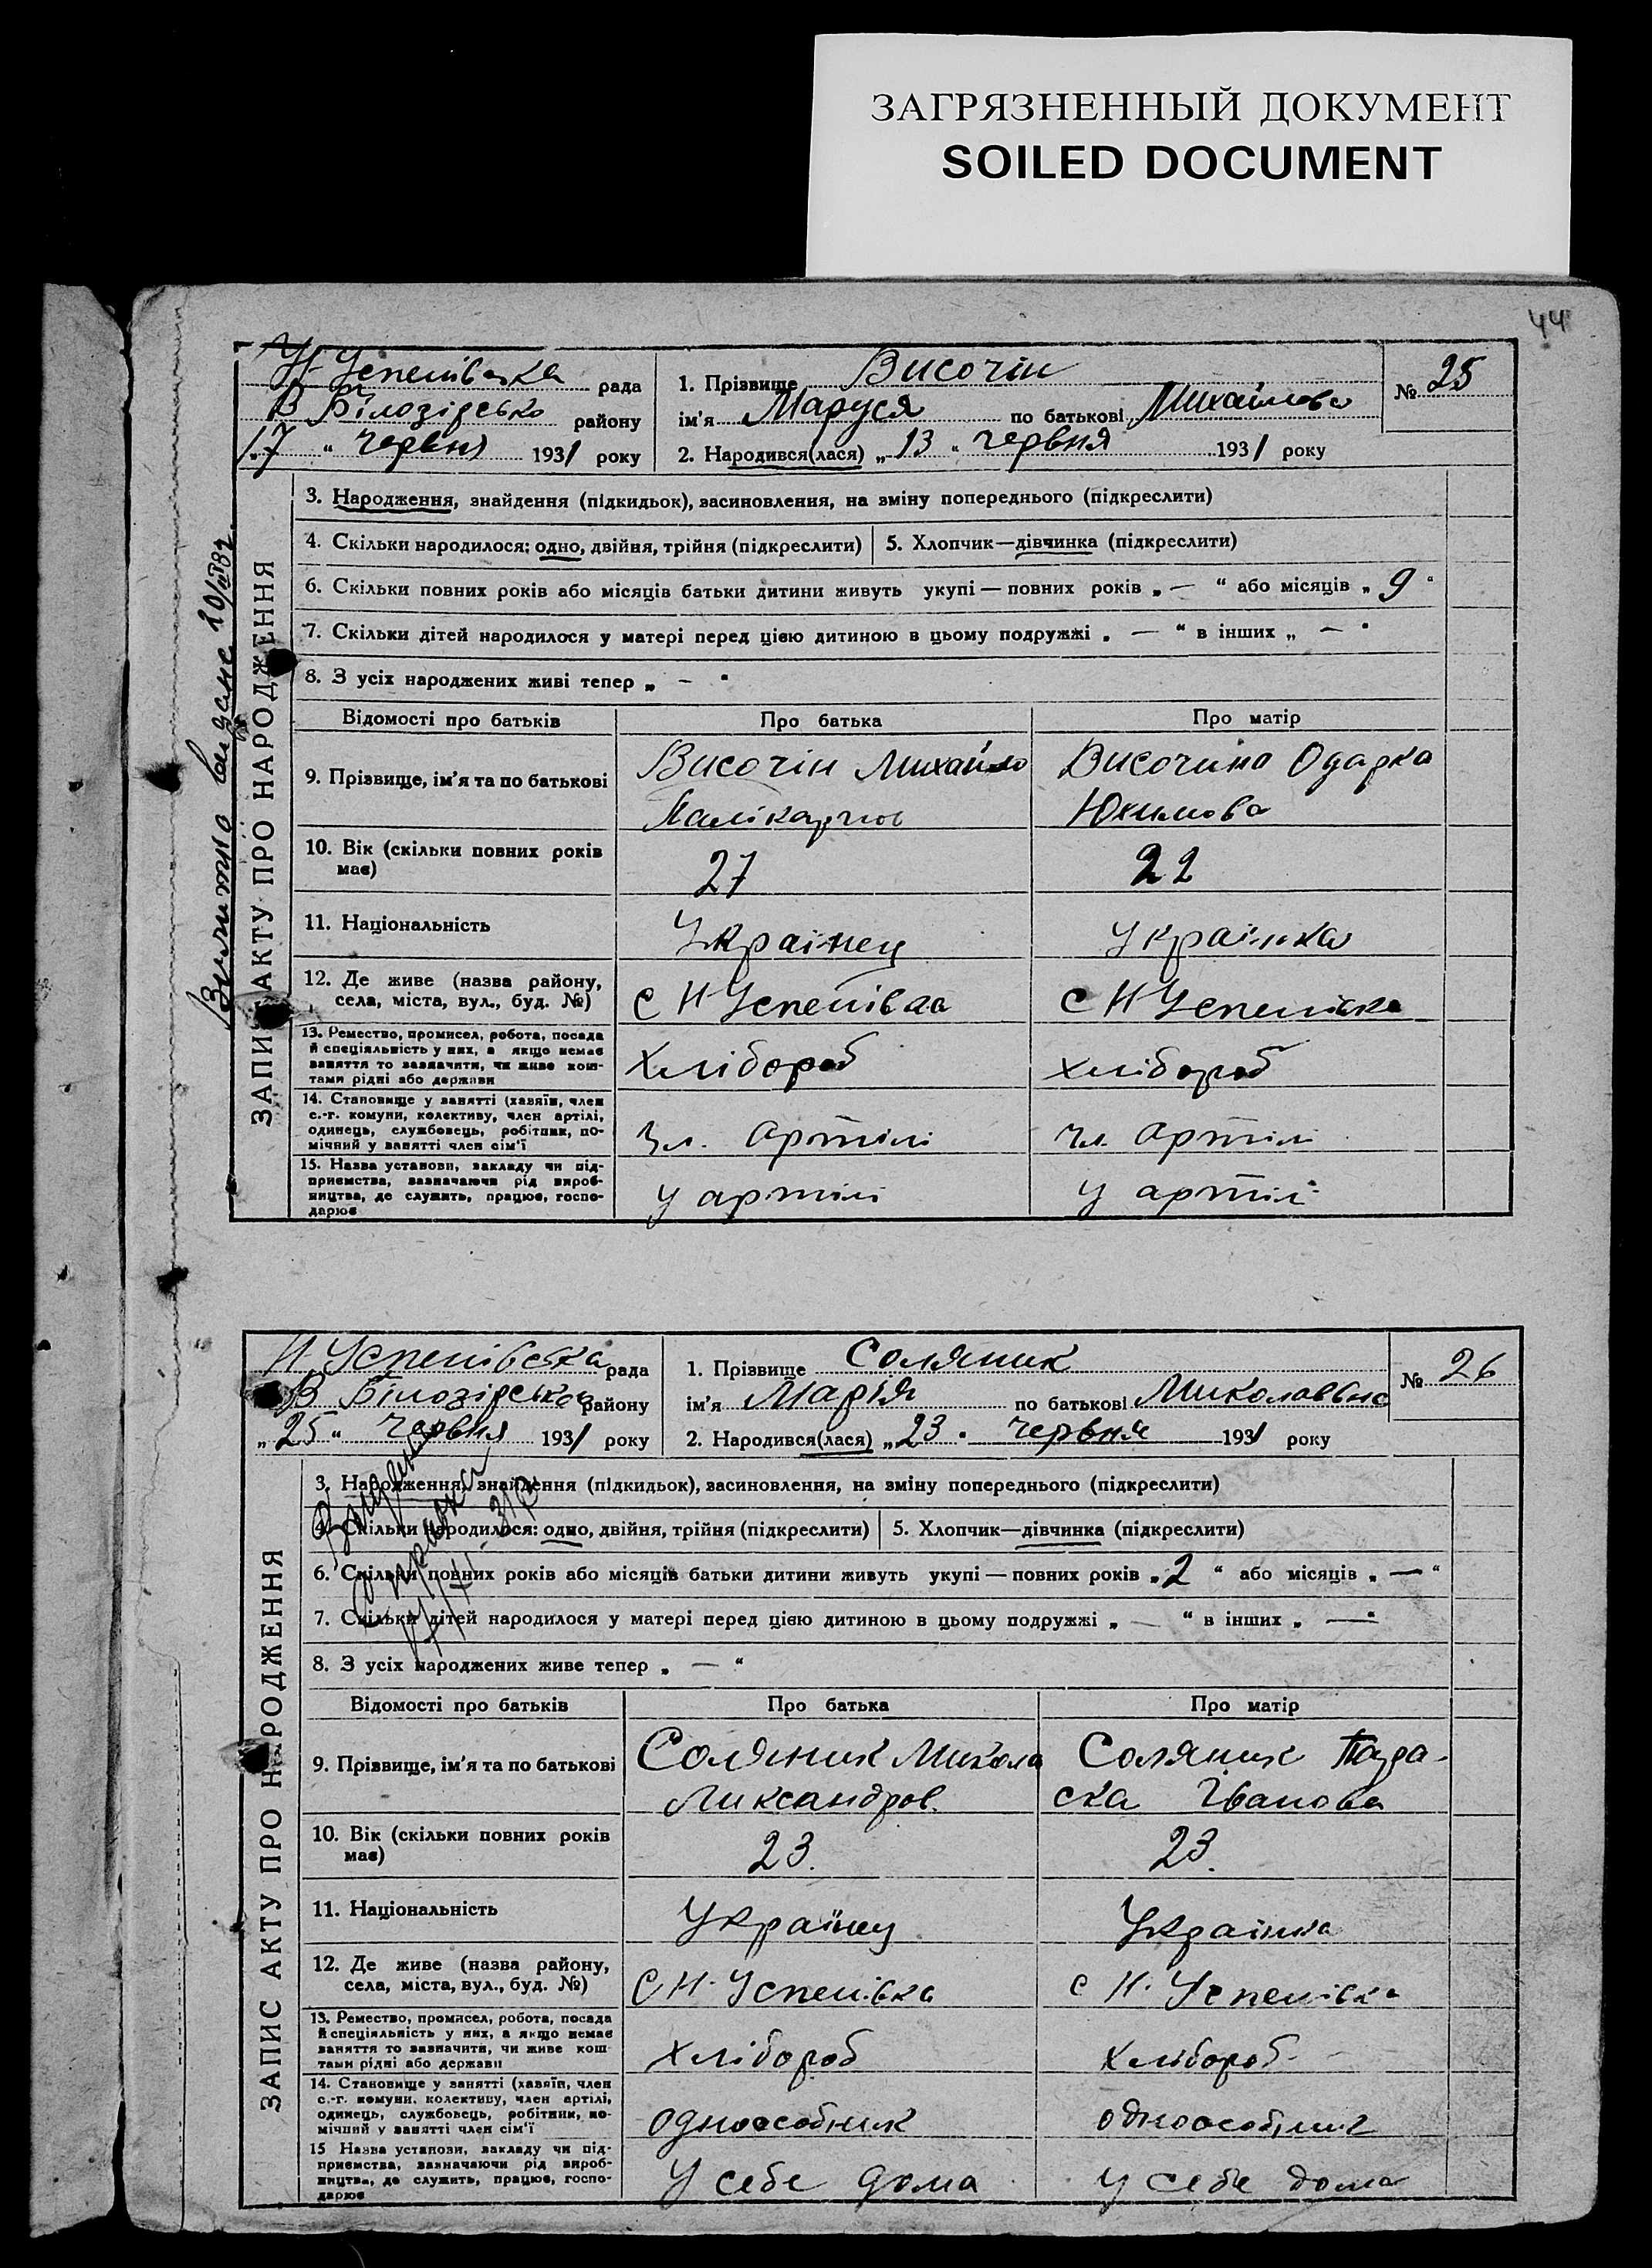 ЗАГРЯЗНЕННЫЙ ДОКУМЕНТ
SOILED DOCUMENT
44
Н-Успенівська рада
В Білозірсько району
„17“ червня 1931 року
1. Прізвище Височін
ім'я Маруся по батькові Михайлова
2. Народився(лася) „13“ червня 1931 року
№ 25
ЗАПИС АКТУ ПРО НАРОДЖЕННЯ
3. Народження, знайдення (підкидьок), засиновлення, на зміну попереднього (підкреслити)
4. Скільки народилося: одно, двійня, трійня (підкреслити) 5. Хлопчик—дівчинка (підкреслити)
6. Скільки повних років або місяців батьки дитини живуть укупі — повних років „ — “ або місяців „ 9 “
7. Скільки дітей народилося у матері перед цією дитиною в цьому подружжі „ — “ в інших „ — “
8. З усіх народжених живі тепер „ — “
Відомості про батьків Про батька Про матір
9. Прізвище, ім'я та по батькові Височін Михайло Височина Одарка
Палікарпов Юхимова
10. Вік (скільки повних років
має) 27 22
11. Національність Украінец Украінка
12. Де живе (назва району,
села, міста, вул., буд. №) с Н Успенівка с Н Успенівка
13. Ремество, промисел, робота, посада
й спеціяльність у них, а якщо немає
заняття то зазначити, чи живе кош-
тами рідні або держави Хлібороб хлібороб
14. Становище у занятті (хазяїн, член
с.-г. комуни, колективу, член артілі,
одинець, службовець, робітник, по-
мічний у занятті член сім'ї чл. артілі чл. артілі
15. Назва установи, закладу чи під-
приємства, зазначаючи рід вироб-
ництва, де служить, працює, госпо-
дарює у артілі у артілі
Н. Успенівська рада
В Білозірська району
„25“ червня 1931 року
1. Прізвище Соляник
ім'я Марія по батькові Миколаввна
2. Народився(лася) „23“ червня 1931 року
№ 26
ЗАПИС АКТУ ПРО НАРОДЖЕННЯ
3. Народження, знайдення (підкидьок), засиновлення, на зміну попереднього (підкреслити)
4. Скільки народилося: одно, двійня, трійня (підкреслити) 5. Хлопчик—дівчинка (підкреслити)
6. Скільки повних років або місяців батьки дитини живуть укупі — повних років „ 2 “ або місяців „ — “
7. Скільки дітей народилося у матері перед цією дитиною в цьому подружжі „ — “ в інших „ — “
8. З усіх народжених живе тепер „ — “
Відомості про батьків Про батька Про матір
9. Прізвище, ім'я та по батькові Соляник Микола Соляник Пара-
Ликсандров. ска Іванова
10. Вік (скільки повних років
має) 23. 23.
11. Національність Українец Українка
12. Де живе (назва району,
села, міста, вул., буд. №) С Н. Успенівка с Н. Успенівка
13. Ремество, промисел, робота, посада
й спеціяльність у них, а якщо немає
заняття то зазначити, чи живе кош-
тами рідні або держави Хлібороб Хлібороб
14. Становище у занятті (хазяїн, член
с.-г. комуни, колективу, член артілі,
одинець, службовець, робітник, по-
мічний у занятті член сім'ї одноособник одноособник
15 Назва установи, закладу чи під-
приємства, зазначаючи рід вироб-
ництва, де служить, працює, госпо-
дарює У себе дома у себе дома